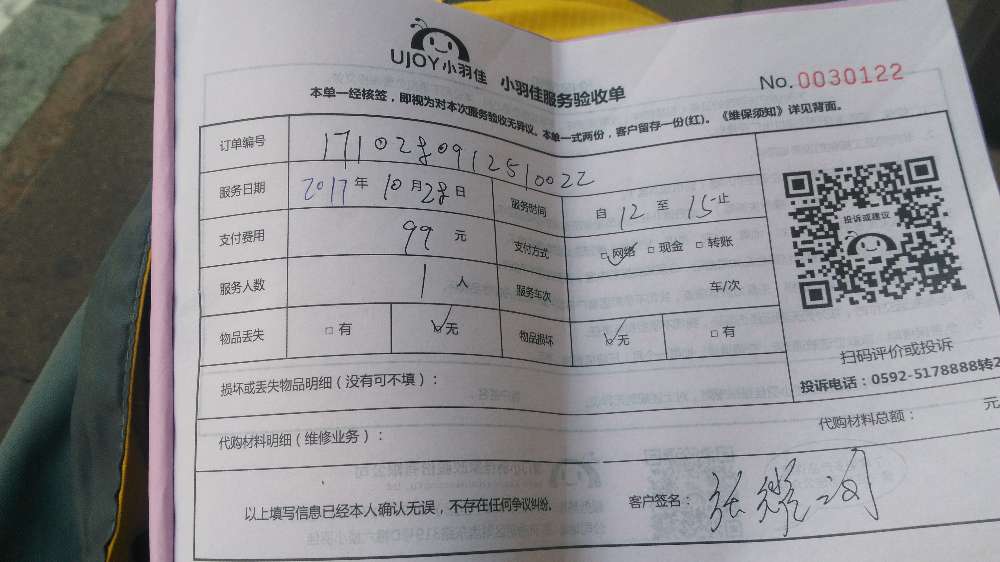 UJOY小羽佳 小羽佳服务验收单
No.0030122
本单一经核签,即视为对本次服务验收无异议。本单一式两份,客户留存一份(红)。《维保须知》详见背面。
订单编号 1710280912510022
服务日期 2017年10月28日 服务时间 自12至15止
支付费用 99元 支付方式 □网络 □现金 □转账
服务人数 1人 服务车次 车/次
物品丢失 □有 □无 物品损坏 □无 □有
投诉或建议
扫码评价或投诉
投诉电话:0592-5178888转2
损坏或丢失物品明细(没有可不填):
代购材料明细(维修业务): 代购材料总额: 元
以上填写信息已经本人确认无误,不存在任何争议纠纷。 客户签名: 张